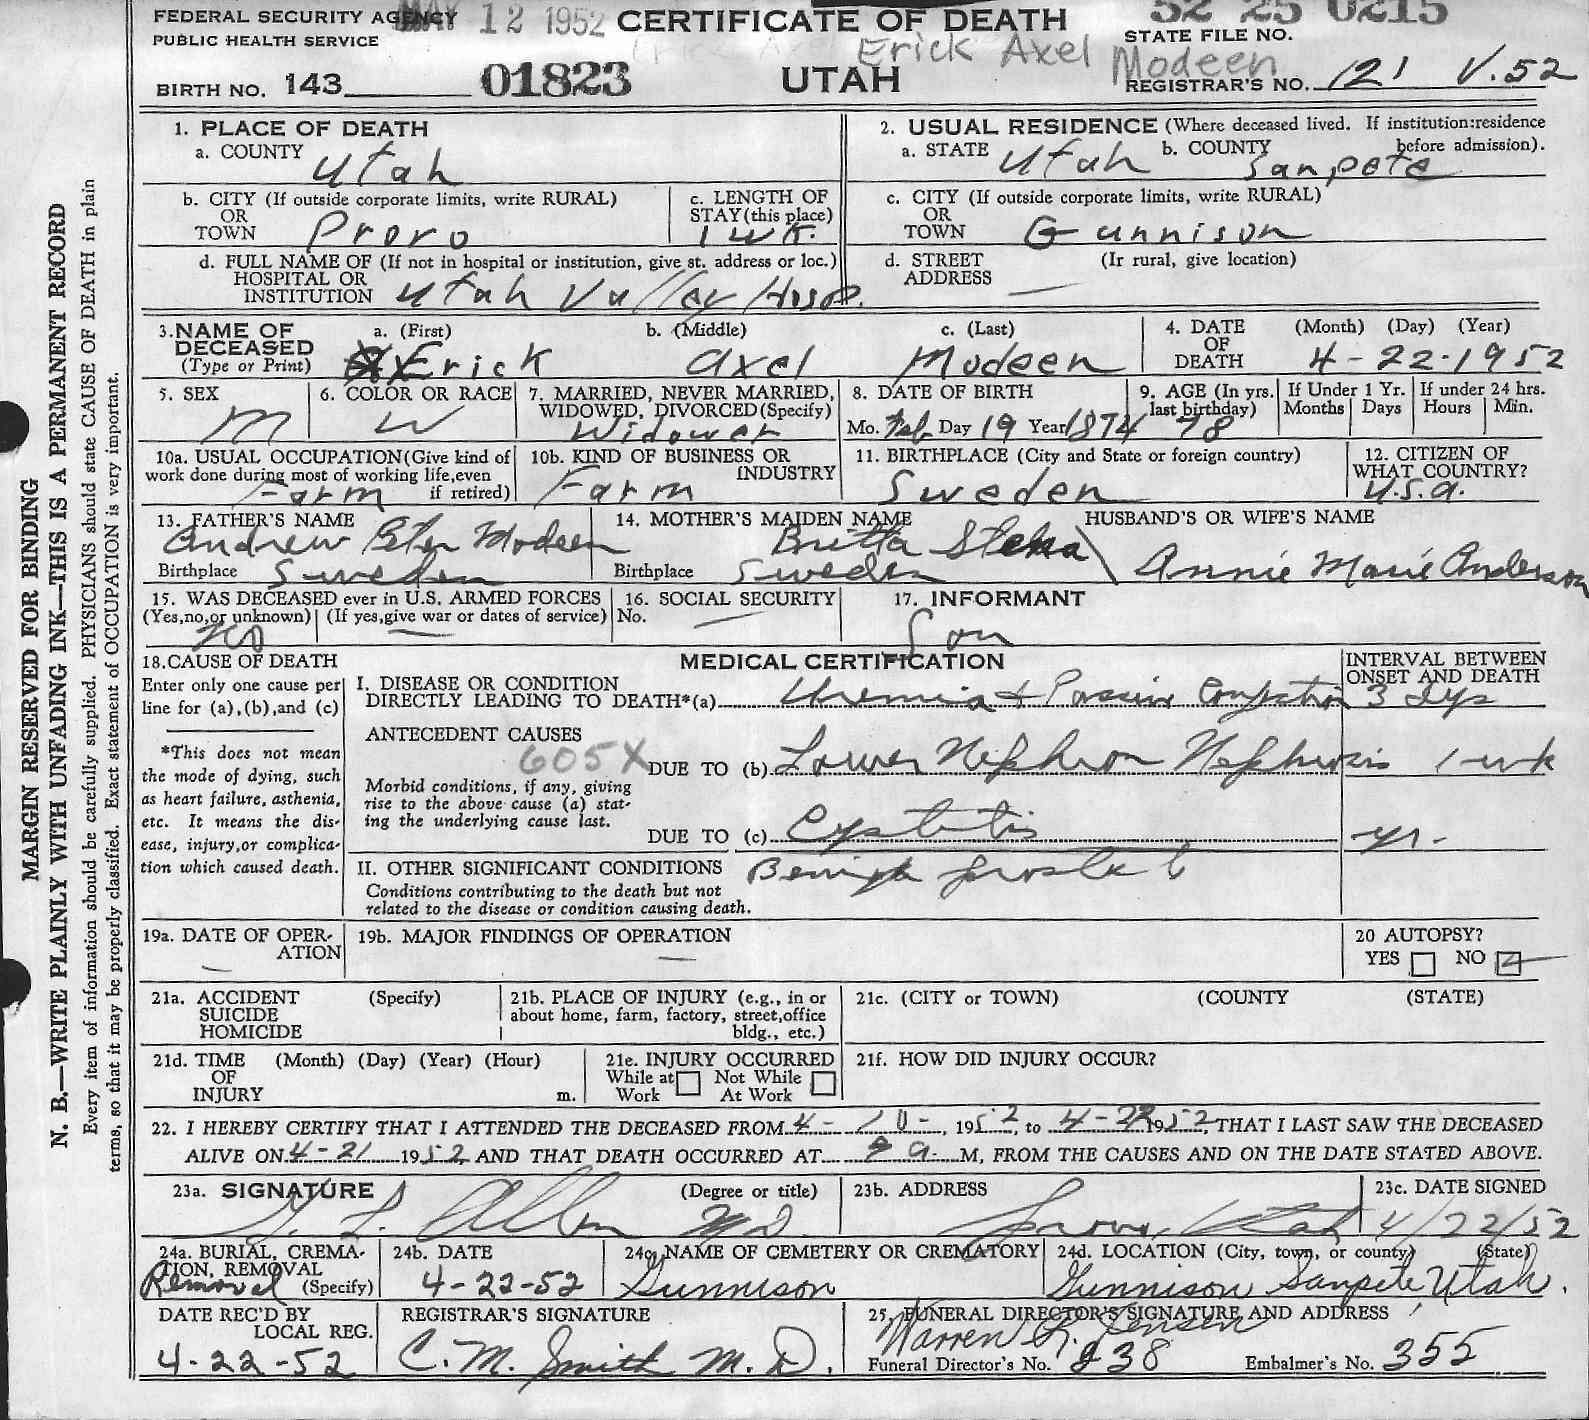 FEDERAL SECURITY AGENCY MAY 12 1952 CERTIFICATE OF DEATH 52 25 0215
PUBLIC HEALTH SERVICE STATE FILE NO.
Erick Axel Modeen
BIRTH NO. 143 01823 UTAH REGISTRAR'S NO. 121 V.52
1. PLACE OF DEATH
a. COUNTY Utah
2. USUAL RESIDENCE (Where deceased lived. If institution:residence before admission).
a. STATE Utah b. COUNTY Sanpete
b. CITY (If outside corporate limits, write RURAL)
OR
TOWN Provo
c. LENGTH OF
STAY(this place)
1 wk.
c. CITY (If outside corporate limits, write RURAL)
OR
TOWN Gunnison
d. FULL NAME OF (If not in hospital or institution, give st. address or loc.)
HOSPITAL OR
INSTITUTION Utah Valley Hosp.
d. STREET (Ir rural, give location)
ADDRESS —
3. NAME OF DECEASED
(Type or Print)
a. (First) b. (Middle) c. (Last)
Erick Axel Modeen
4. DATE OF DEATH (Month) (Day) (Year)
4-22-1952
5. SEX
M
6. COLOR OR RACE
W
7. MARRIED, NEVER MARRIED,
WIDOWED, DIVORCED(Specify)
Widower
8. DATE OF BIRTH
Mo. Feb Day 19 Year 1874
9. AGE (In yrs. last birthday)
78
If Under 1 Yr.
Months Days
If under 24 hrs.
Hours Min.
10a. USUAL OCCUPATION(Give kind of
work done during most of working life,even
if retired)
Farm
10b. KIND OF BUSINESS OR
INDUSTRY
Farm
11. BIRTHPLACE (City and State or foreign country)
Sweden
12. CITIZEN OF
WHAT COUNTRY?
U.S.A.
13. FATHER'S NAME
Andrew Peter Modeen
Birthplace Sweden
14. MOTHER'S MAIDEN NAME
Britta Stena
Birthplace Sweden
HUSBAND'S OR WIFE'S NAME
Annie Marie Anderson
15. WAS DECEASED ever in U.S. ARMED FORCES
(Yes,no,or unknown) (If yes,give war or dates of service)
No —
16. SOCIAL SECURITY
No. —
17. INFORMANT
Son
18. CAUSE OF DEATH
Enter only one cause per
line for (a),(b),and (c)
*This does not mean
the mode of dying, such
as heart failure, asthenia,
etc. It means the dis-
ease, injury,or complica-
tion which caused death.
MEDICAL CERTIFICATION
INTERVAL BETWEEN
ONSET AND DEATH
I. DISEASE OR CONDITION
DIRECTLY LEADING TO DEATH*(a) Uremia & Passive Congestion 3 dys
ANTECEDENT CAUSES
605X
Morbid conditions, if any, giving
rise to the above cause (a) stat-
ing the underlying cause last.
DUE TO (b) Lower Nephron Nephrosis 1 wk
DUE TO (c) Cystitis yr.
II. OTHER SIGNIFICANT CONDITIONS
Conditions contributing to the death but not
related to the disease or condition causing death.
Benign
19a. DATE OF OPER-
ATION
—
19b. MAJOR FINDINGS OF OPERATION
—
20 AUTOPSY?
YES NO
21a. ACCIDENT (Specify)
SUICIDE
HOMICIDE
21b. PLACE OF INJURY (e.g., in or
about home, farm, factory, street,office
bldg., etc.)
21c. (CITY or TOWN) (COUNTY (STATE)
21d. TIME (Month) (Day) (Year) (Hour)
OF
INJURY m.
21e. INJURY OCCURRED
While at Work Not While At Work
21f. HOW DID INJURY OCCUR?
22. I HEREBY CERTIFY THAT I ATTENDED THE DECEASED FROM 4-10-, 1952, to 4-22 1952, THAT I LAST SAW THE DECEASED
ALIVE ON 4-21 1952 AND THAT DEATH OCCURRED AT a. M, FROM THE CAUSES AND ON THE DATE STATED ABOVE.
23a. SIGNATURE (Degree or title)
Allen MD
23b. ADDRESS
Provo, Utah
23c. DATE SIGNED
4/22/52
24a. BURIAL, CREMA-
TION, REMOVAL
(Specify)
Removal
24b. DATE
4-22-52
24c. NAME OF CEMETERY OR CREMATORY
Gunnison
24d. LOCATION (City, town, or county) (State)
Gunnison Sanpete Utah.
DATE REC'D BY
LOCAL REG.
4-22-52
REGISTRAR'S SIGNATURE
C. M. Smith M. D.
25. FUNERAL DIRECTOR'S SIGNATURE AND ADDRESS
Warren Jensen
Funeral Director's No. 238 Embalmer's No. 355
MARGIN RESERVED FOR BINDING
N. B.—WRITE PLAINLY WITH UNFADING INK—THIS IS A PERMANENT RECORD
Every item of information should be carefully supplied. PHYSICIANS should state CAUSE OF DEATH in plain
terms, so that it may be properly classified. Exact statement of OCCUPATION is very important.